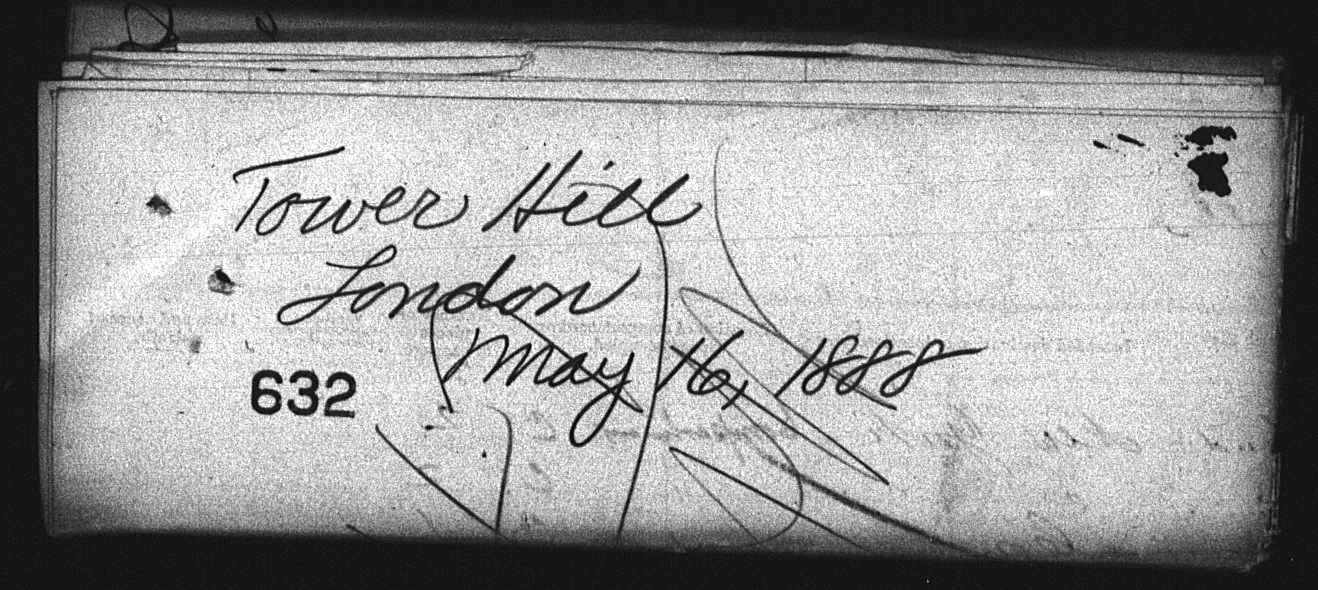 Tower Hill
London
May 16, 1888
632